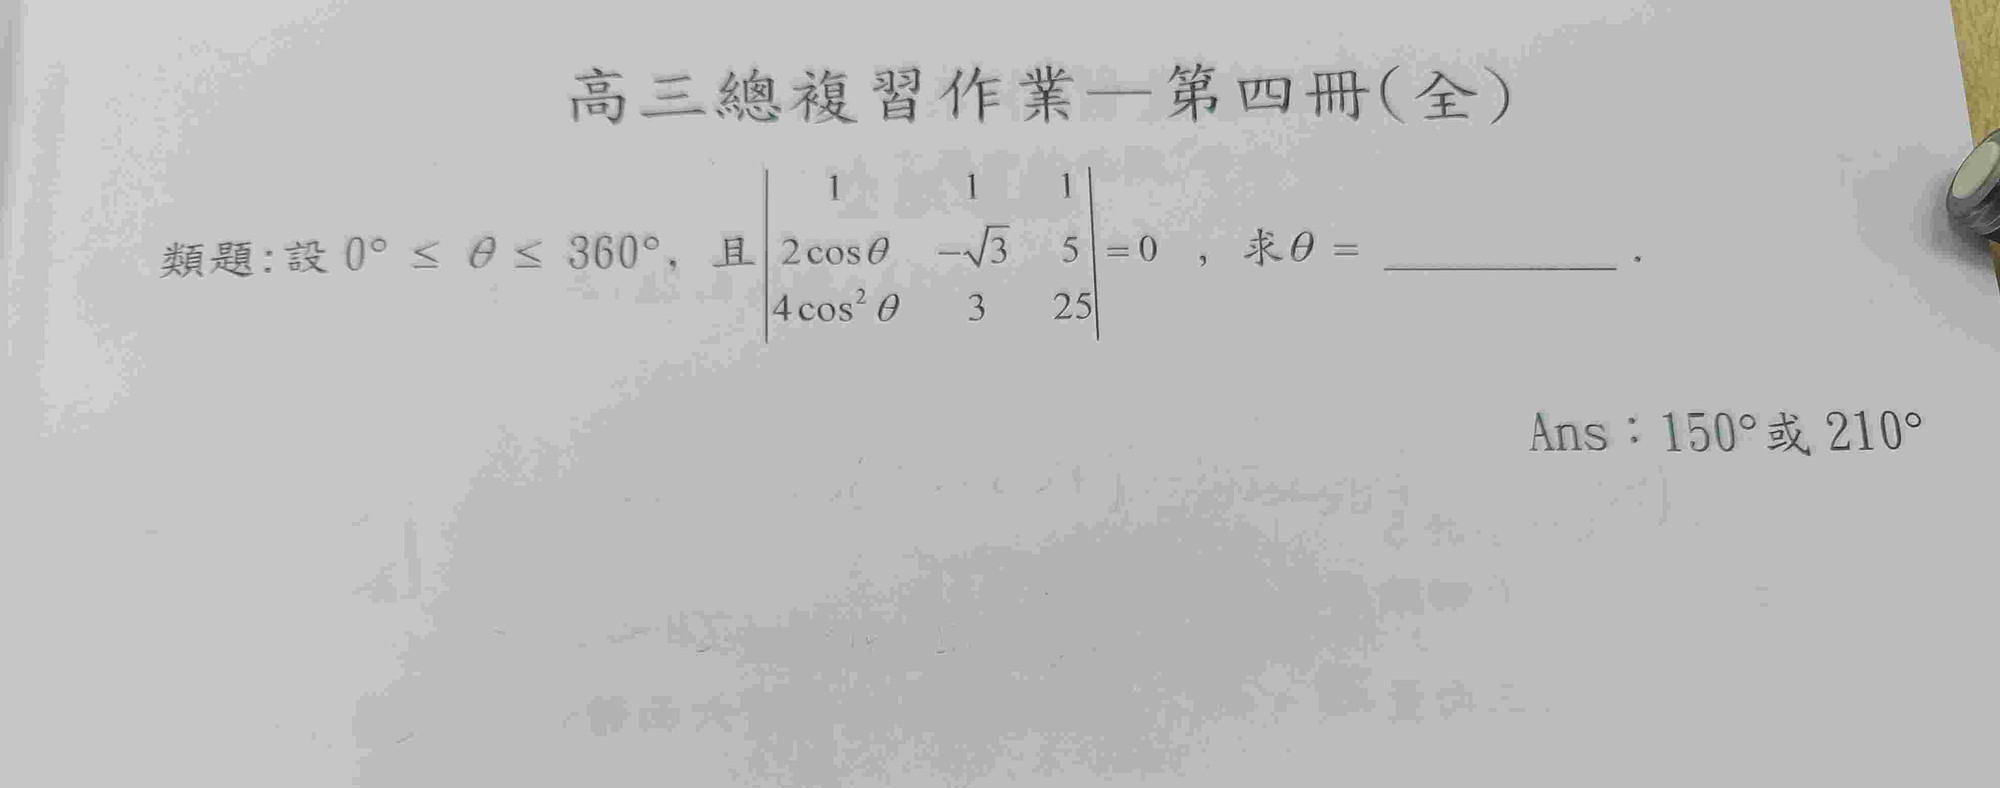 高三總複習作業—第四冊(全)
類題:設 0° ≤ θ ≤ 360°, 且 | 1 1 1 ; 2cosθ -√3 5 ; 4cos²θ 3 25 | = 0 , 求θ = ________ .
Ans:150°或 210°